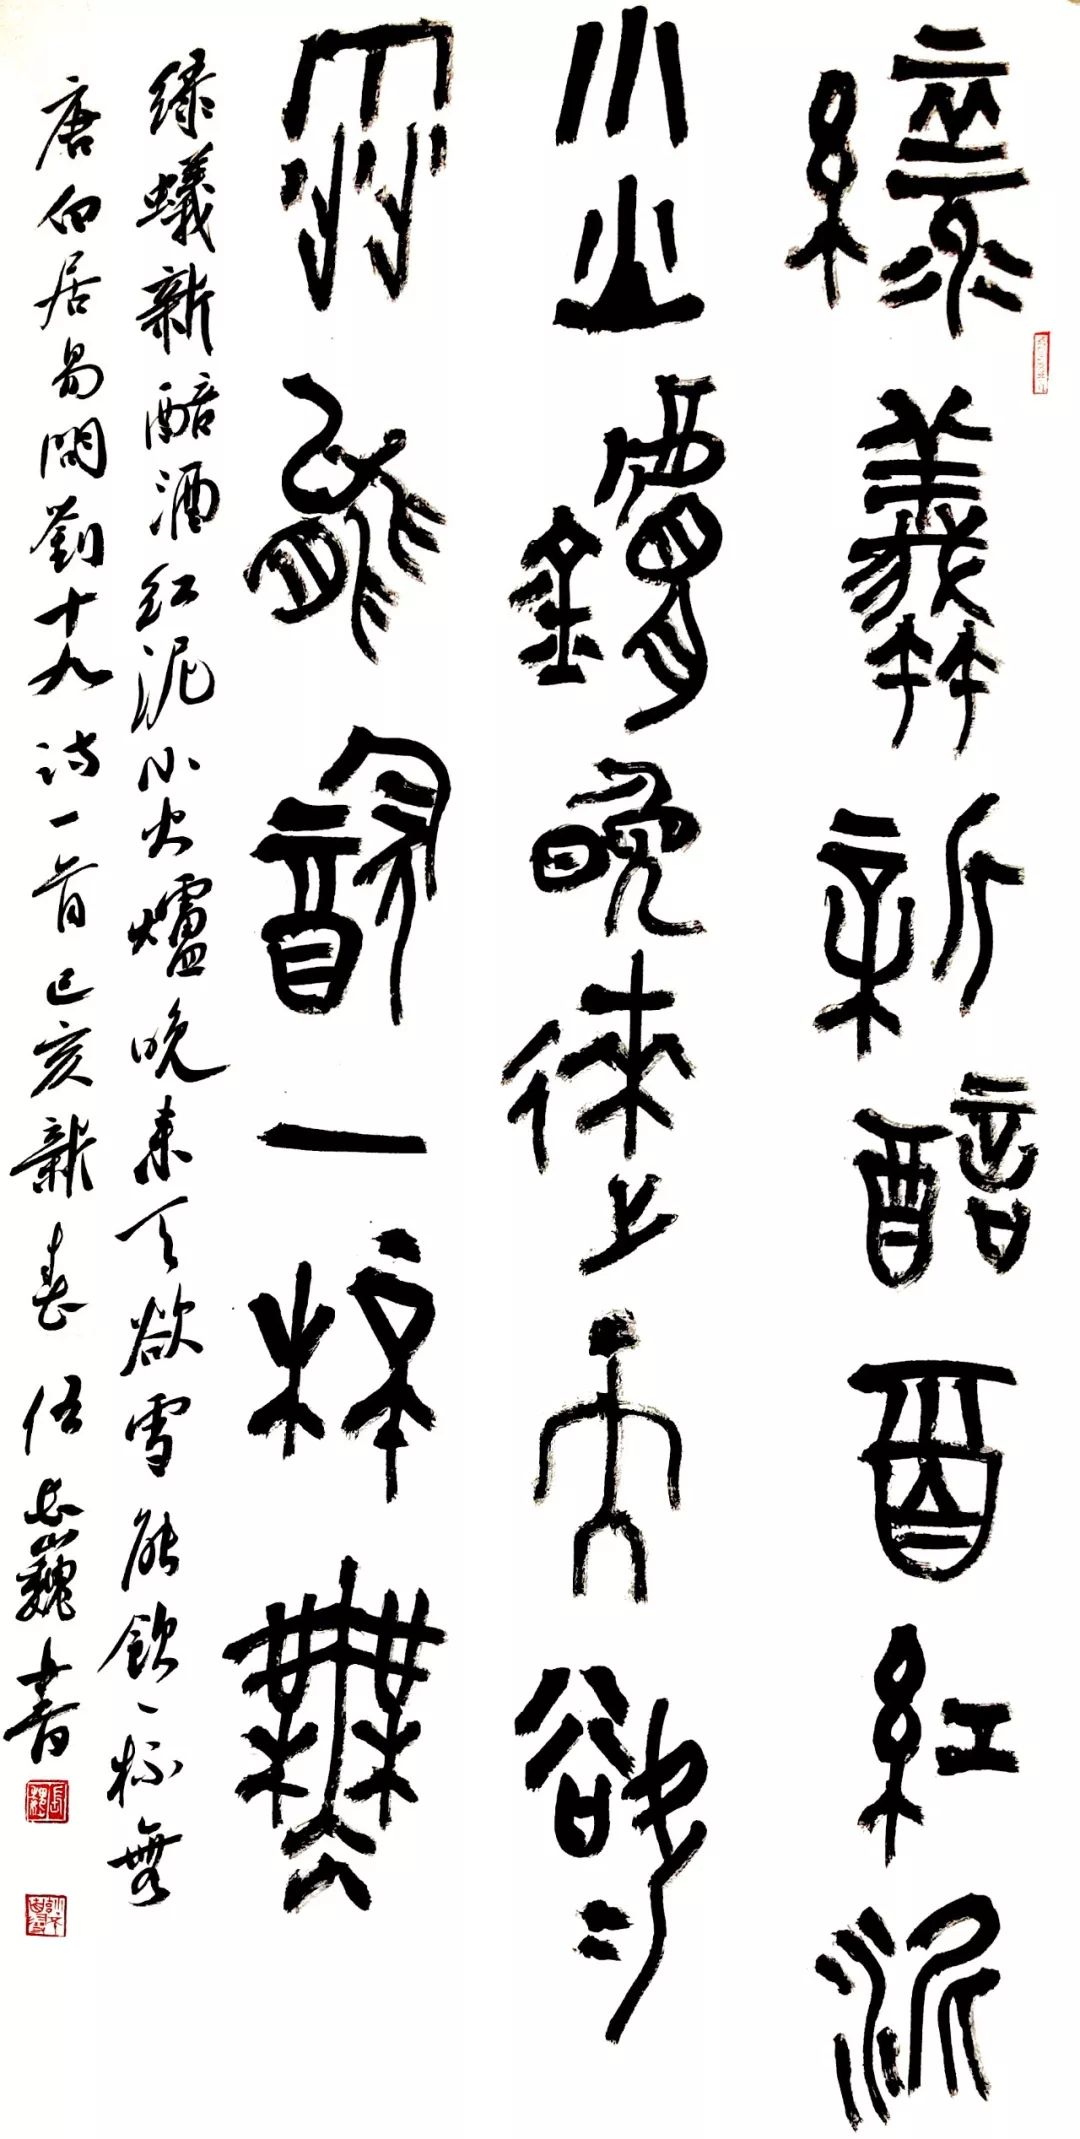 綠蟻新醅酒紅泥
小火鑪晚來天欲
雪能飲一杯無
绿蟻新醅酒红泥小火爐晚来天欲雪能飲一杯無
唐白居易問劉十九诗一首己亥新春伍长巍書